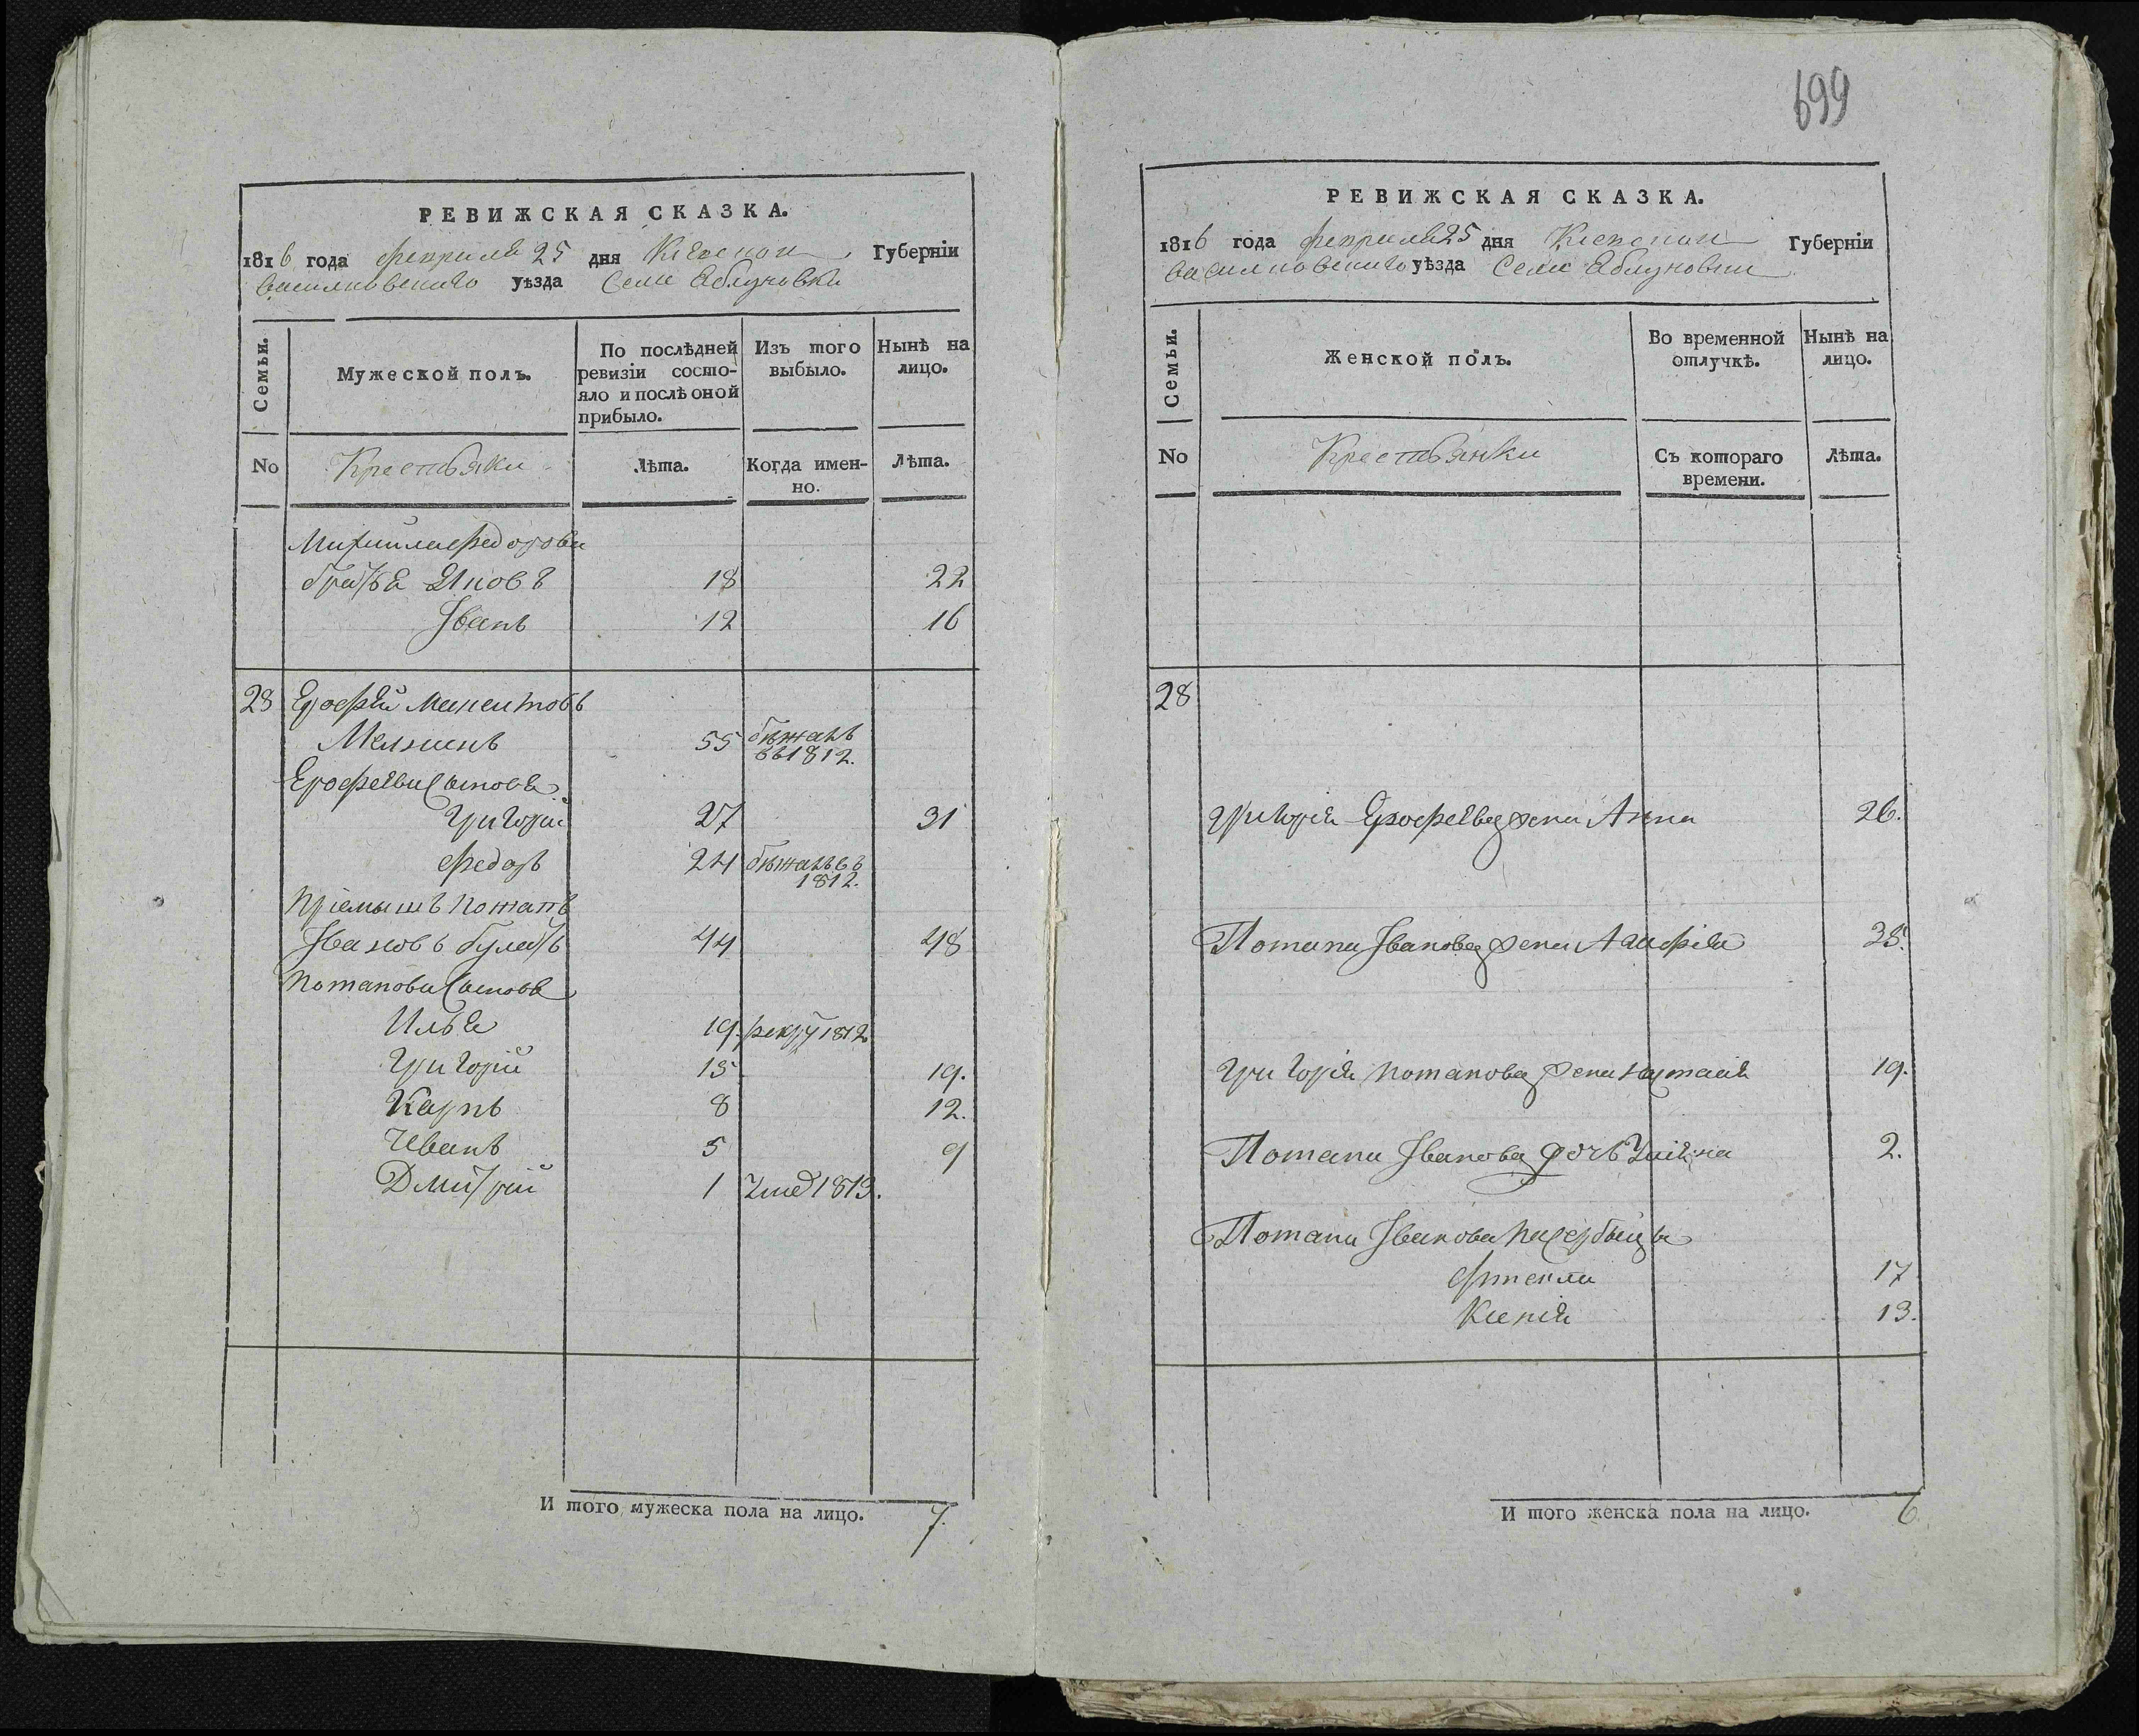 699
РЕВИЖСКАЯ СКАЗКА.
1816 года февраля 25 дня Киевской Губернїи
Василковского уѣзда Села Яблуновки
Семьи.
Мужеской полъ.
По послѣдней ревизїи состо-
яло и послѣ оной
прибыло.
Изъ того
выбыло.
Нынѣ на
лицо.
No
Крестьяки
Лѣта.
Когда имен-
но.
Лѣта.
Михаила Федорова
братья Яковъ 18 22
Іванъ 12 16
28 Ерофѣй
Мелникъ 55 бѣжалъ
въ 1812.
Ерофеева Сыновя
Григорій 27 31
Федоръ 24 бѣжалъ въ
1812.
Пріемышъ Потапъ
Івановъ 44 48
Потапова Сыновя
Илья 19. рекру 1812
Григорій 15 19.
Карпъ 8 12.
Иванъ 5 9
Дмитрій 1 Умер 1813.
И того мужеска пола на лицо. 7.
РЕВИЖСКАЯ СКАЗКА.
1816 года февраля 25 дня Киевской Губернїи
Василковского уѣзда Села Яблуновки
Семьи.
Женской полъ.
Во временной
отлучкѣ.
Нынѣ на
лицо.
No
Крестьянки
Съ котораго
времени.
Лѣта.
28
Григорія Ерофеева жена Анна 26.
Потапа Іванова жена Агафія 35.
Григорія Потапова жена 19.
Потапа Іванова дочь 2.
Потапа Іванова пасербицы
Фтекла 17
Ксенія 13.
И того женска пола на лицо. 6